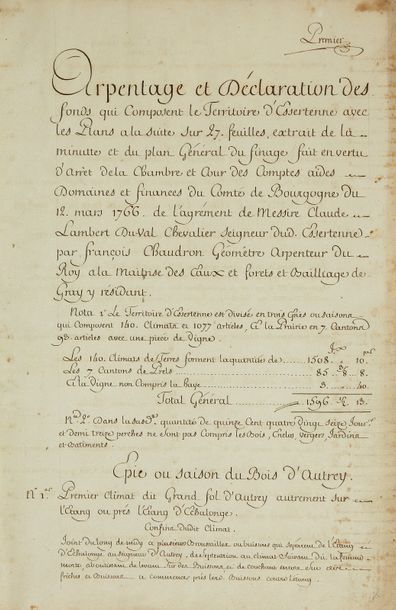 Premier
Arpentage et Déclaration des
fonds qui Composent le Territoire d'Essertenne avec
les Plans a la suite sur 27. feuilles, extrait de la
minutte et du plan Général du finage fait en vertu
d'Arret de la Chambre et Cour des Comptes aides
Domaines et finances du Comté de Bourgogne du
12. mars 1766. de l'agrément de Messire Claude
Lambert Duval Chevalier Seigneur dud. Essertenne
par françois Chaudron Géometre Arpenteur du
Roy a la Maitrise des Eaux et forets et Bailliage de
Gray y résidant.
Nota 1.º Le Territoire d'Essertenne est divisé en trois Epies ou saisons
qui Composent 140. Climats et 1077 articles, & la Prairie en 7. Cantons
98. articles avec une piece de digne.
Les 140. Climats de Terres forment la quantité de 1508. 10.
Les 7 Cantons de Prels 85. 8.
& la digne non Compris la baye 3. 40.
Total Général 1596. 13.
N.ª 2.º Dans la susd. quantité de quinze Cent quatre Vingt Seize Jour.
et demi treize perches ne s'ont pas Compris les Bois, Enclos, Vergers, Jardins
et Batiments.
Epie ou saison du Bois d'Autrey.
N.º 1. Premier Climat dit Grand Sol d'Autrey autrement sur
l'Etang ou près l'Etang d'Echalonge.
Confins dudit Climat.
Joint du long de midy a plusieurs Broussailles ou buissons qui séparent de l'Etang
d'Echalonge, au seigneur d'Autrey, de septentrion au climat suivant
friches et Buissons, a commencer près les Buissons